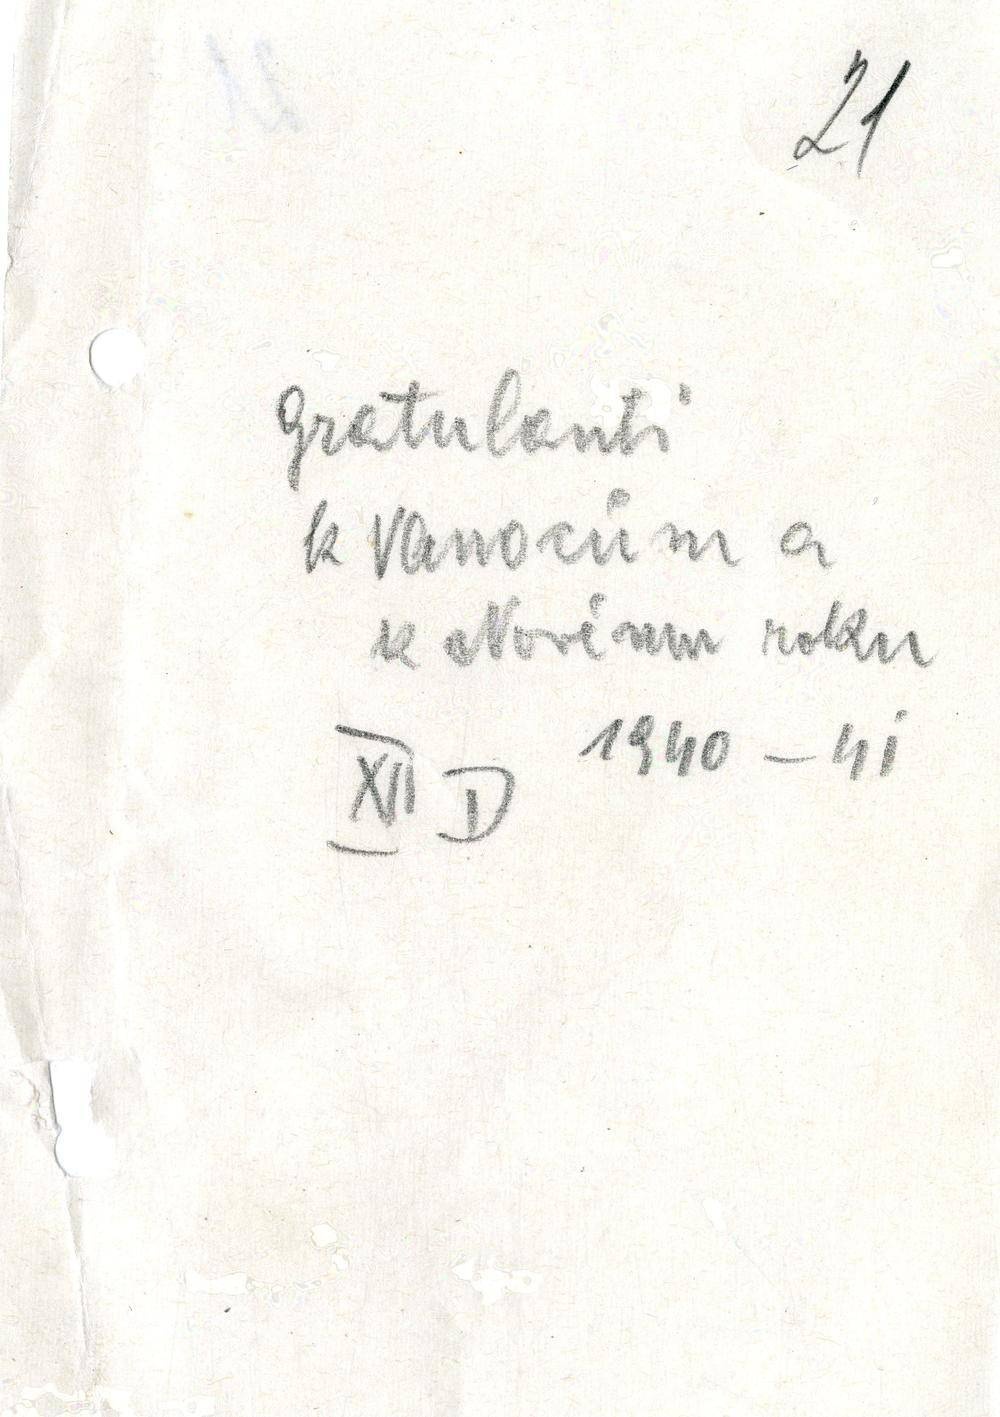 21
Gratulanti
k Vánocům a
k Novému roku
1940 – 41
XII D